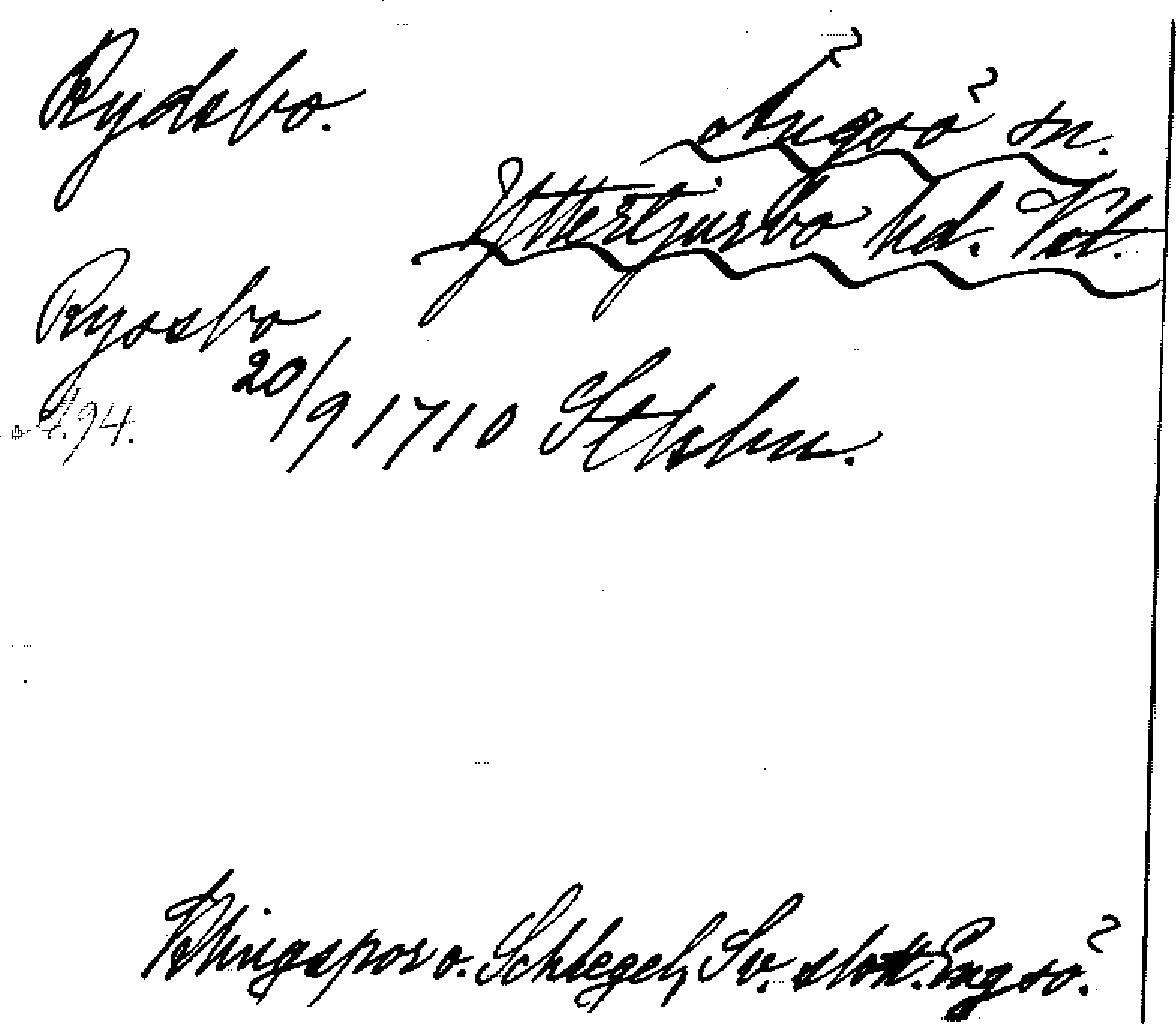 Rydsbo.
Ängsö sn.
Yttertjurbo hd. Vstm.
Ryssbo
s. 94. 20/9 1710 Sthlm.
Klingspor o. Schlegel, Sv. slott. Engsö.